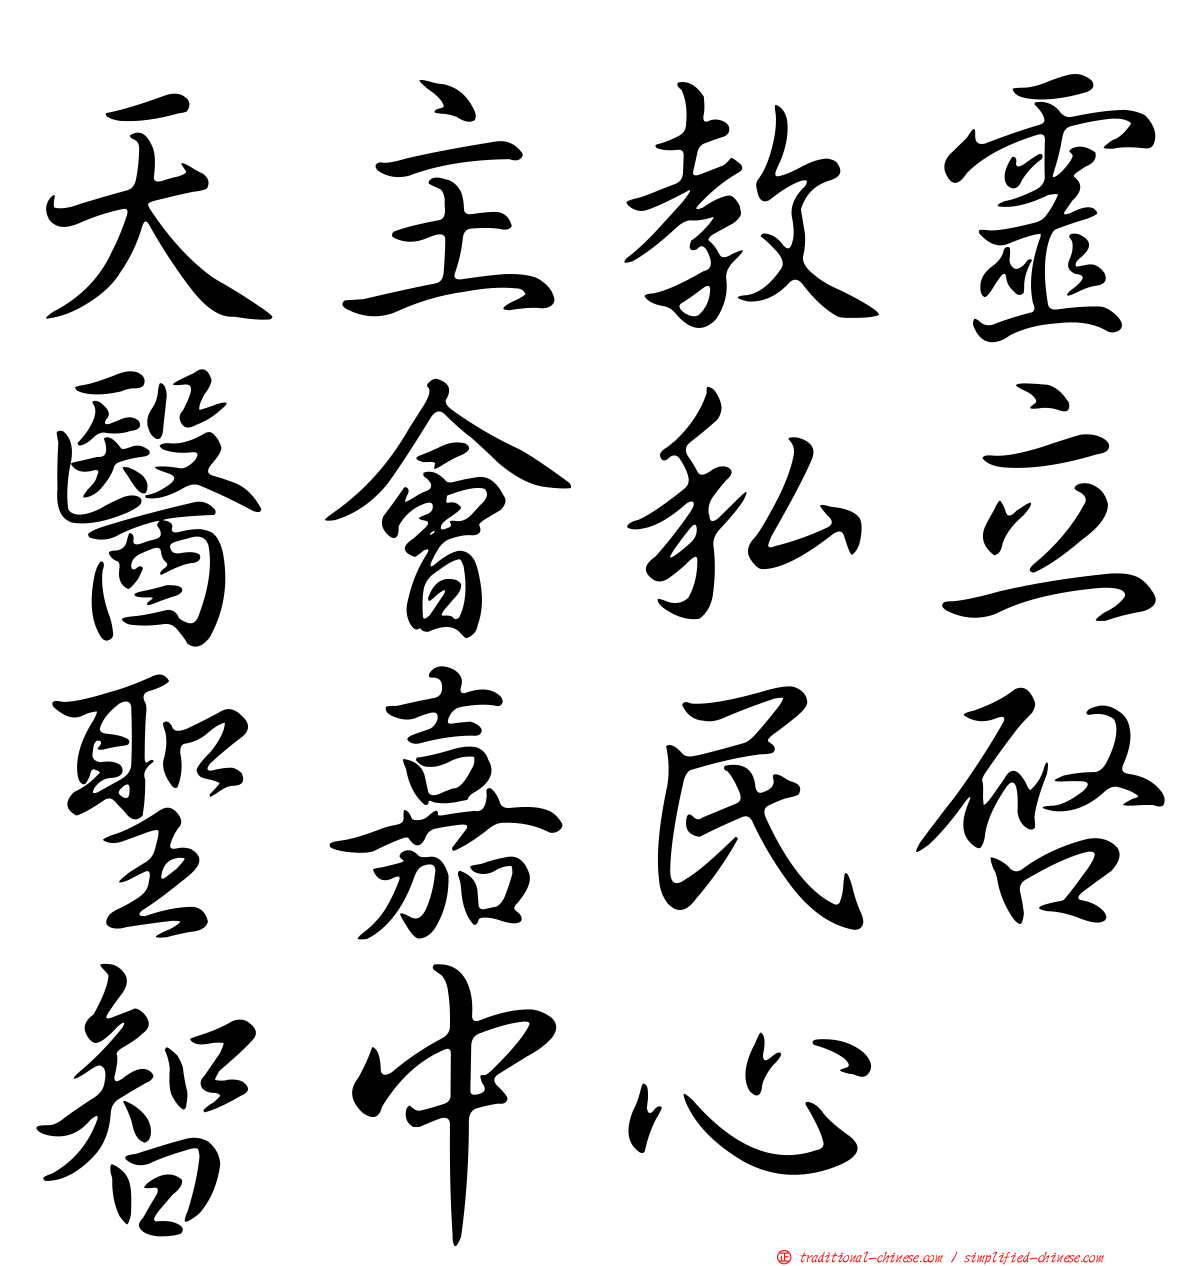 天主教靈
醫會私立
聖嘉民啓
智中心
正 traditional-chinese.com / simplified-chinese.com